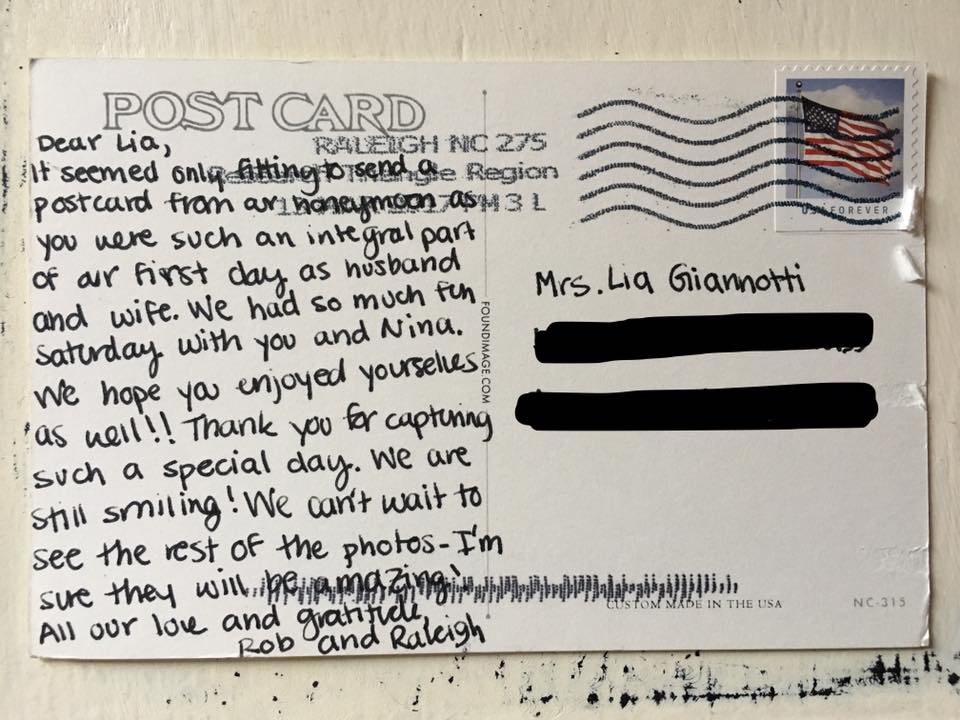 POST CARD
RALEIGH NC 275
Research Triangle Region
PM 3 L
Dear Lia,
It seemed only fitting to send a
postcard from our honeymoon as
you were such an integral part
of our first day as husband
and wife. We had so much fun
Saturday with you and Nina.
We hope you enjoyed yourselves
as well!! Thank you for capturing
such a special day. We are
still smiling! We can't wait to
see the rest of the photos - I'm
sure they will be amazing!
All our love and gratitude,
Rob and Raleigh
FOUNDIMAGE.COM
USA FOREVER
Mrs. Lia Giannotti
CUSTOM MADE IN THE USA
NC-315